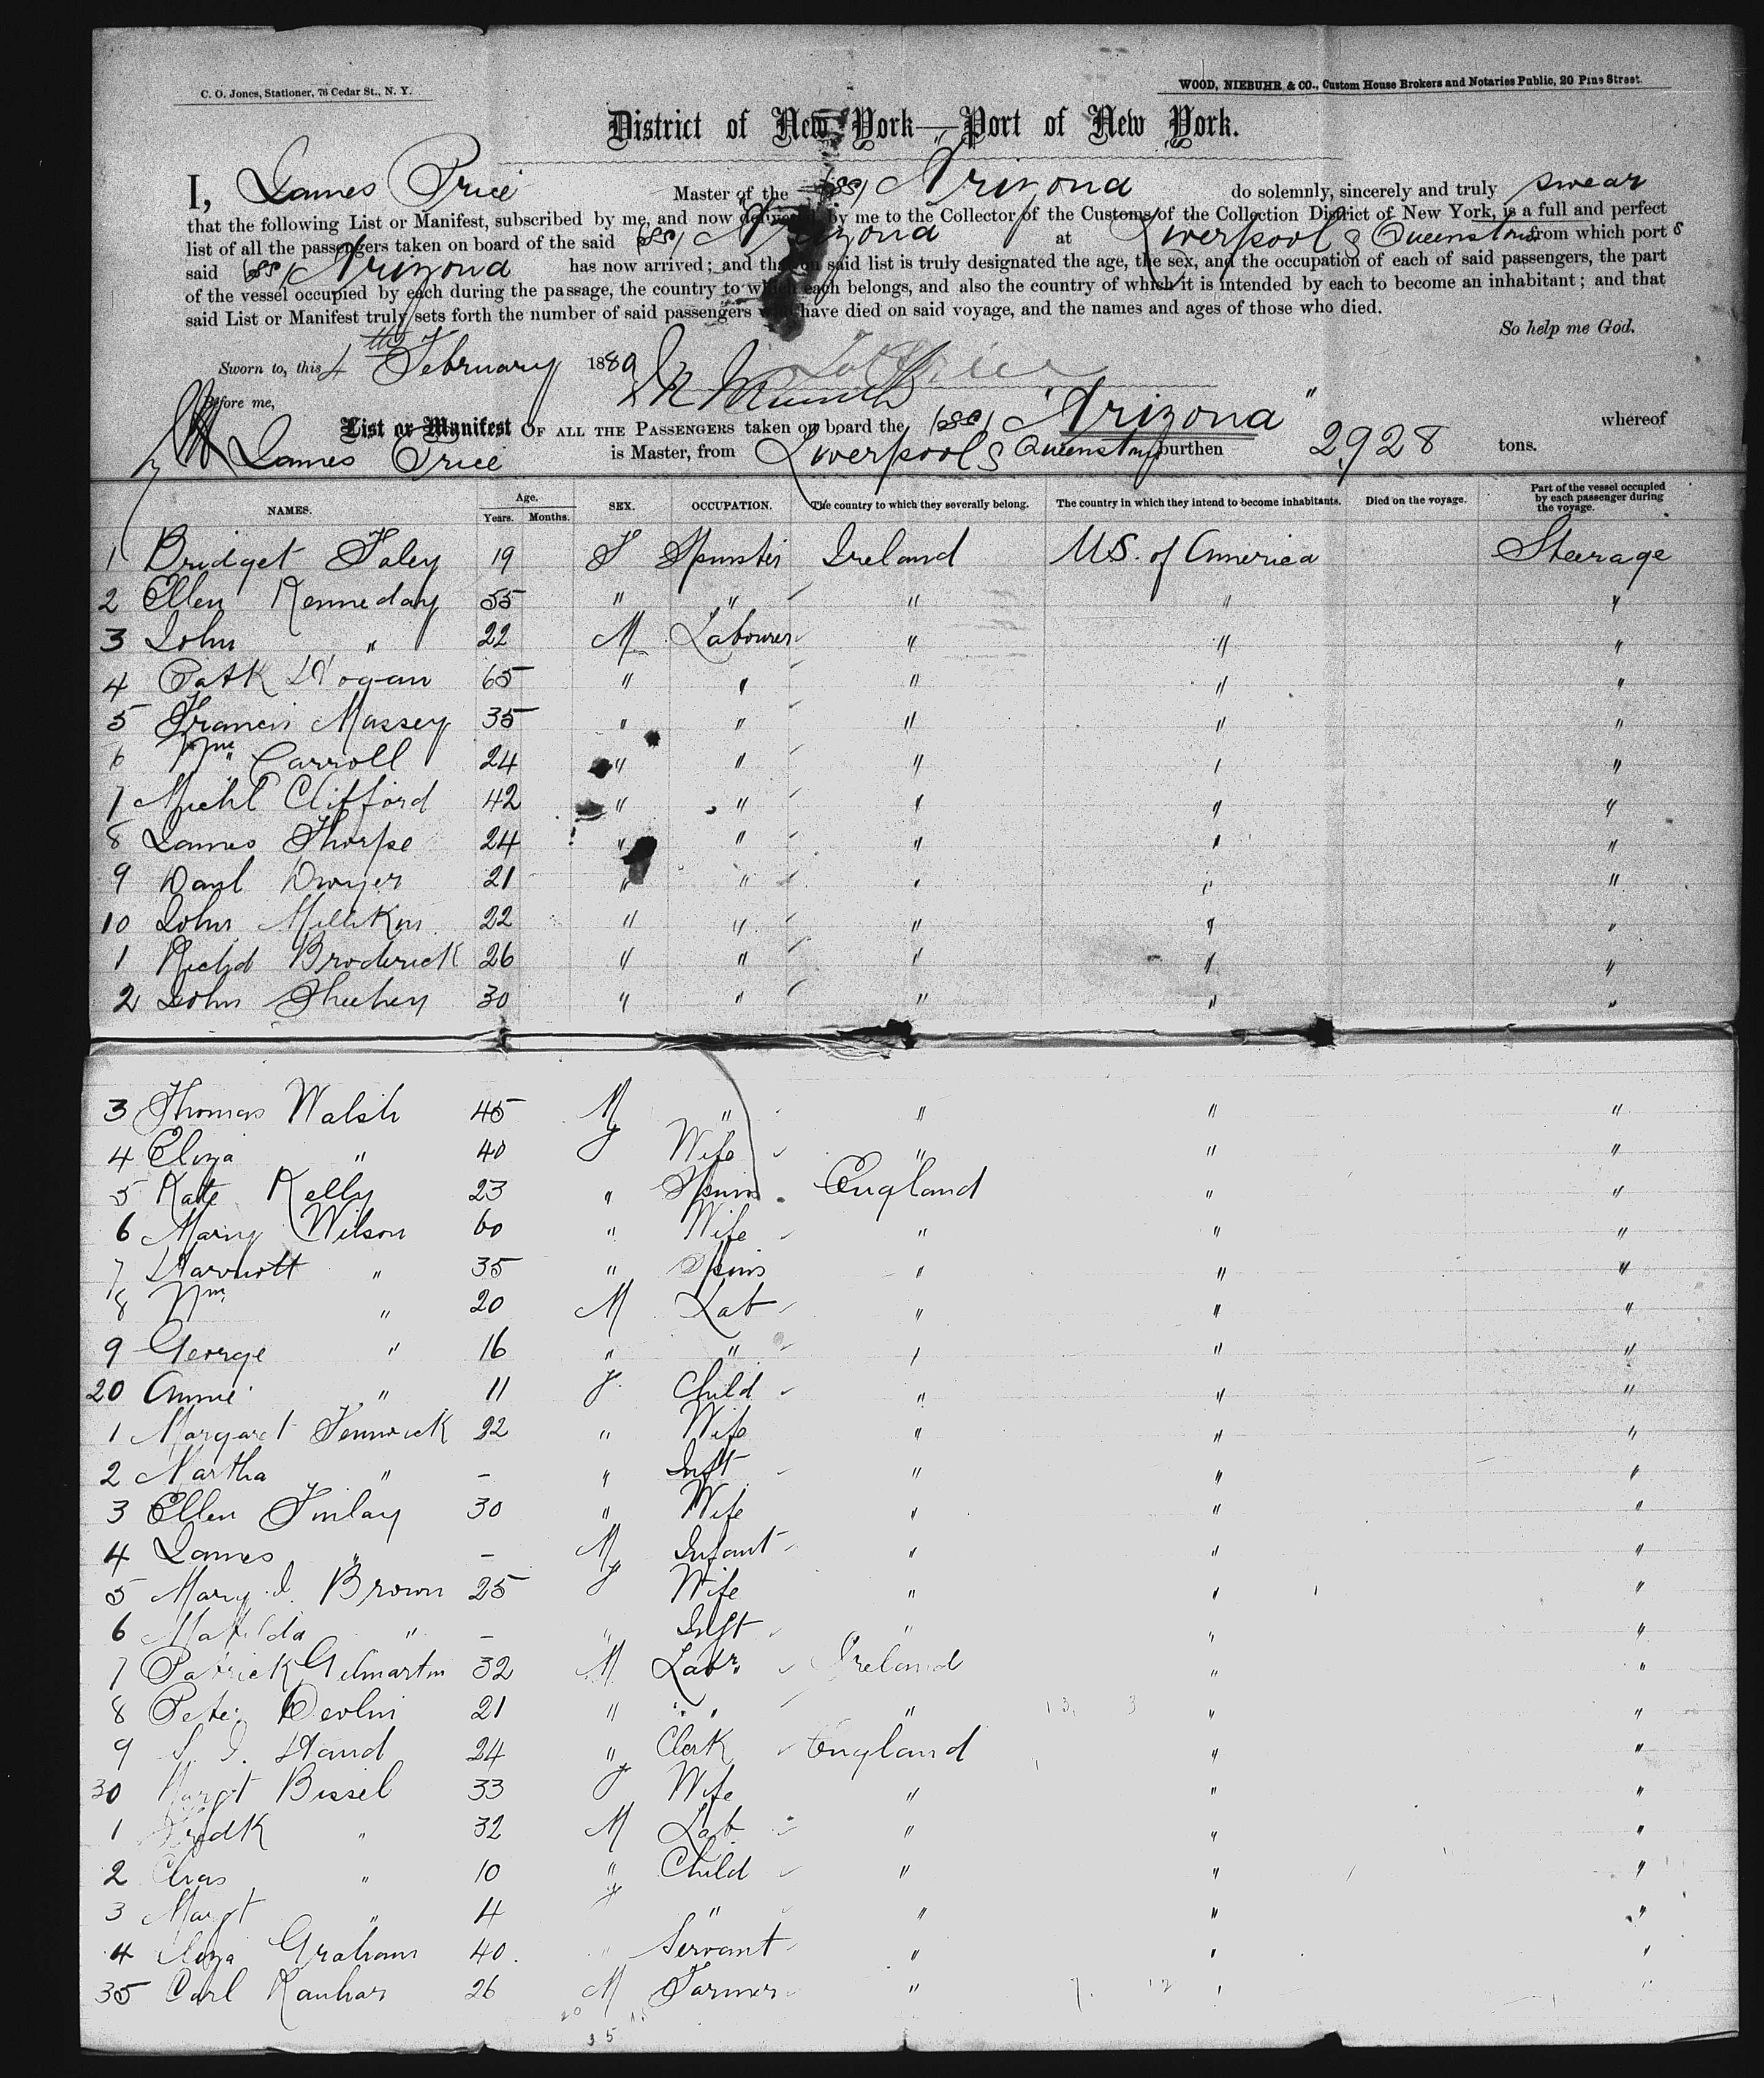 C. O. Jones, Stationer, 76 Cedar St., N. Y.
WOOD, NIEBUHR & CO., Custom House Brokers and Notaries Public, 20 Pine Street.
District of New York—Port of New York.
I, James Price Master of the (SS) Arizona do solemnly, sincerely and truly swear
that the following List or Manifest, subscribed by me, and now delivered by me to the Collector of the Customs of the Collection District of New York, is a full and perfect
list of all the passengers taken on board of the said (SS) Arizona at Liverpool & Queenstown from which port s
said (SS) Arizona has now arrived; and that on said list is truly designated the age, the sex, and the occupation of each of said passengers, the part
of the vessel occupied by each during the passage, the country to which each belongs, and also the country of which it is intended by each to become an inhabitant; and that
said List or Manifest truly sets forth the number of said passengers who have died on said voyage, and the names and ages of those who died.
So help me God.
Sworn to, this 4th February 1889
Before me,
List or Manifest OF ALL THE PASSENGERS taken on board the (SS) "Arizona" whereof
James Price is Master, from Liverpool & Queenstown burthen 2,928 tons.
NAMES. Age. Years. Months. SEX. OCCUPATION. The country to which they severally belong. The country in which they intend to become inhabitants. Died on the voyage. Part of the vessel occupied by each passenger during the voyage.
1 Bridget Foley 19 F Spinster Ireland U.S. of America Steerage
2 Ellen Kenneday 55 " " " " "
3 John " 22 M Labourer " " "
4 Patk Hogan 65 " " " " "
5 Francis Massey 35 " " " " "
6 Wm Carroll 24 " " " " "
7 Michl Clifford 42 " " " " "
8 James Thorpe 24 " " " " "
9 Danl Dwyer 21 " " " " "
10 John Milliken 22 " " " " "
1 Richd Broderick 26 " " " " "
2 John Sheehey 30 " " " " "
3 Thomas Walsh 45 M " " " "
4 Eliza " 40 F Wife " " "
5 Kate Kelly 23 " Spins England " "
6 Mary Wilson 60 " Wife " " "
7 Harriott " 35 " Spins " " "
8 Wm " 20 M Lab " " "
9 George " 16 " " " " "
20 Annie " 11 F Child " " "
1 Margaret Fenwick 22 " Wife " " "
2 Martha " - " Inft " " "
3 Ellen Finlay 30 " Wife " " "
4 James " - M Infant " " "
5 Mary J. Brown 25 F Wife " " "
6 Matilda " - " Inft " " "
7 Patrick Gilmartin 32 M Labr. Ireland " "
8 Peter Devlin 21 " " " " "
9 Hand 24 " Clerk England " "
30 Margt Bissel 33 F Wife " " "
1 Fredk " 32 M Lab " " "
2 Chas " 10 " Child " " "
3 Margt " 4 F " " " "
4 Eliza Graham 40 " Servant " " "
35 Carl 26 M Farmer " " "